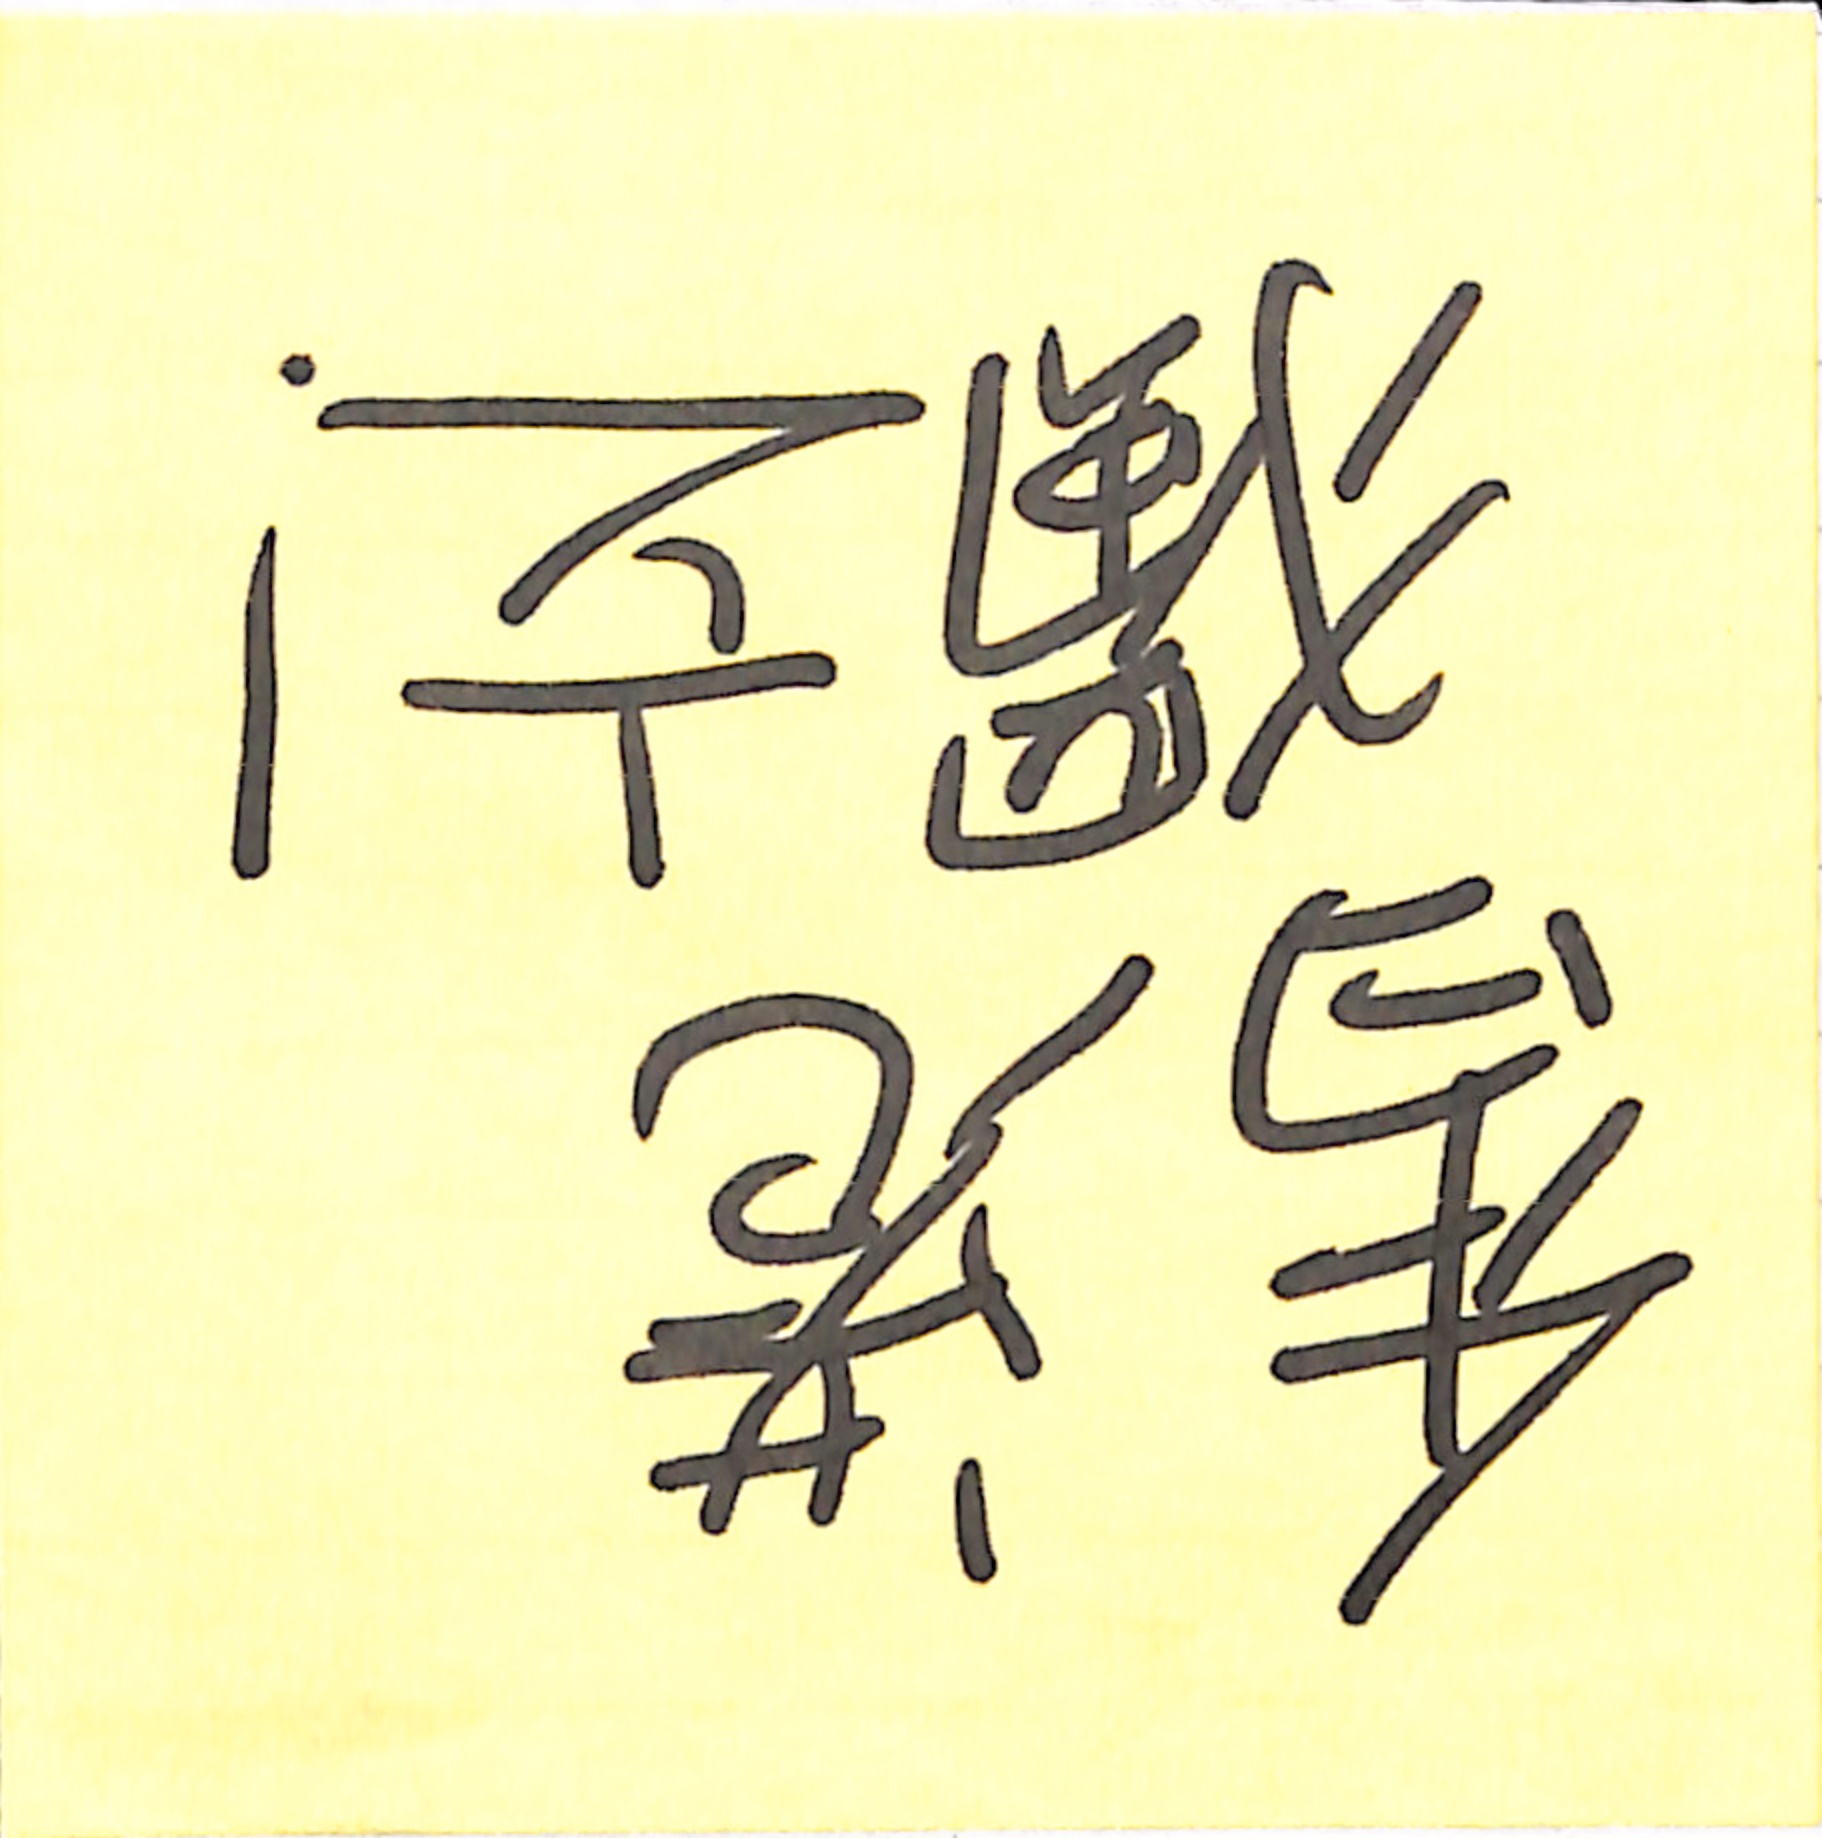 香港
獨立!